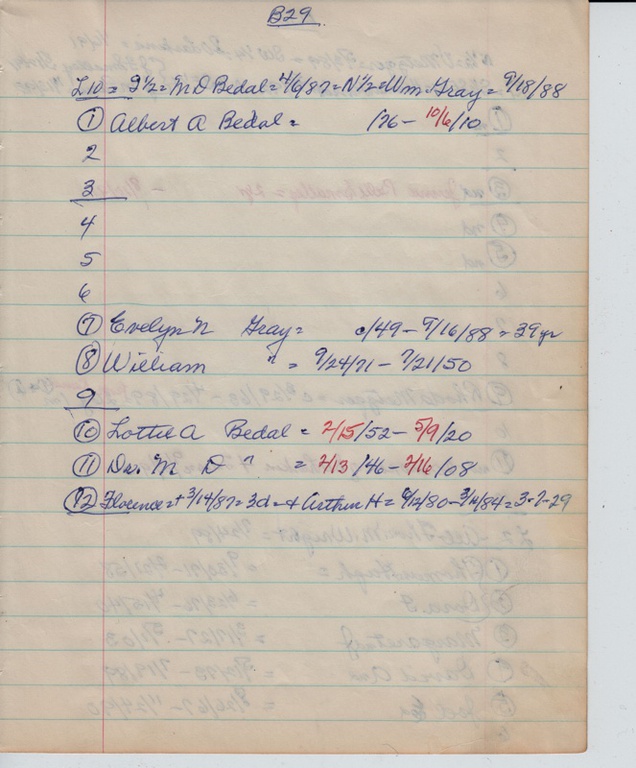 B29
L10 = S½ = M D Bedal = 4/6/87 = N½ = Wm. Gray = 9/18/88
① Albert A Bedal = /26 – 10/6/10
2
3
4
5
6
⑦ Evelyn N Gray = c/49 – 9/16/88 = 39 yr
⑧ William " = 9/24/71 – 7/21/50
9
⑩ Lottie A Bedal = 2/15/52 – 5/9/20
⑪ Dr. M D " = 2/13/46 – 2/16/08
⑫ Florence = + 3/14/87 = 3d = + Arthur H = 8/12/80 – 3/14/84 = 3-7-29